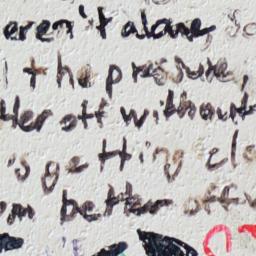 eren't alone, So
the pressure,
tter off without
's getting clo
om better off w